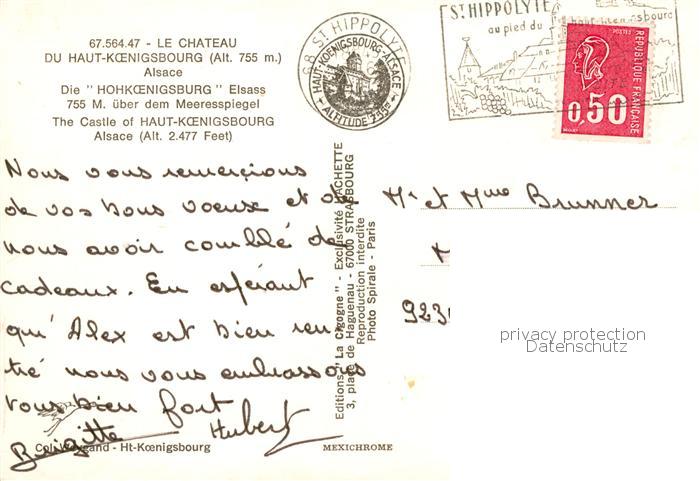 67.564.47 - LE CHATEAU
DU HAUT-KŒNIGSBOURG (Alt. 755 m.)
Alsace
Die "HOHKŒNIGSBURG" Elsass
755 M. über dem Meeresspiegel
The Castle of HAUT-KŒNIGSBOURG
Alsace (Alt. 2.477 Feet)
68 ST HIPPOLYTE
HAUT-KOENIGSBOURG-ALSACE
ALTITUDE 755m
ST HIPPOLYTE
au pied du haut-koenigsbourg
POSTES
REPUBLIQUE FRANÇAISE
0,50
Nous vous remercions
de vos bons voeux et de
nous avoir comblé de
cadeaux. En espérant
qu'Alex est bien ren
tré nous vous embrassons
tous bien fort
Brigitte Hubert
Col. Weygand - Ht-Kœnigsbourg
MEXICHROME
Editions "La Cigogne" - Exclusivité HACHETTE
3, place de Haguenau - 67000 STRASBOURG
Reproduction interdite
Photo Spirale - Paris
Mr et Mme Brunner
923
privacy protection
Datenschutz